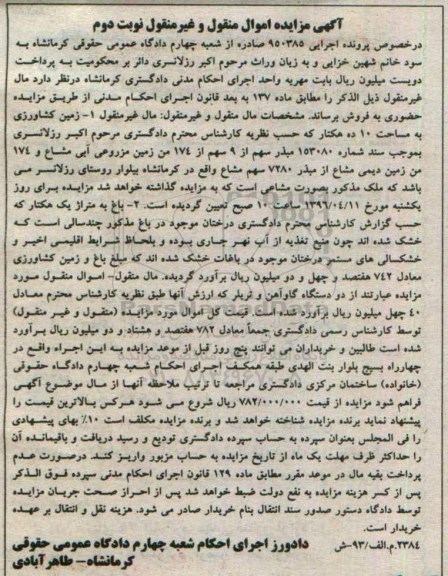 آگهی مزایده اموال منقول و غیرمنقول نوبت دوم
درخصوص پرونده اجرایی ۹۵۰۳۸۵ صادره از شعبه چهارم دادگاه عمومی حقوقی کرمانشاه به
سود خانم شهین خزایی و به زیان وراث مرحوم اکبر رزلانسری دائر بر محکومیت به پرداخت
دویست میلیون ریال بابت مهریه واحد اجرای احکام مدنی دادگستری کرمانشاه درنظر دارد مال
غیرمنقول ذیل الذکر را مطابق ماده ۱۳۷ به بعد قانون اجرای احکام مدنی از طریق مزایده
حضوری به فروش برساند. مشخصات مال منقول و غیرمنقول: مال غیرمنقول ۱- زمین کشاورزی
به مساحت ۱۰ ده هکتار که حسب نظریه کارشناس محترم دادگستری مرحوم اکبر رزلانسری
بموجب سند شماره ۱۵۳۰۸۰ مبذر سهم از ۹ سهم از ۱۷٤ من زمین مزروعی آبی مشاع و ۱۷٤
من زمین دیمی مشاع از مبذر ۷۲۸۰ سهم مشاع واقع در کرمانشاه بیلوار روستای رزلانسر می
باشد که ملک مذکور بصورت مشاعی است که به مزایده گذاشته خواهد شد مزایده برای روز
یکشنبه مورخ ۱۳۹٦/۰٤/۱۱ ساعت ۱۰ صبح تعیین گردیده است. ۲- باغ به متراژ یک هکتار که
حسب گزارش کارشناس محترم دادگستری درختان موجود در باغ مذکور چندسالی است که
خشک شده اند چون منبع تغذیه از آب نهر جاری بوده و بلحاظ شرایط اقلیمی اخیر و
خشکسالی های مستمر درختان موجود در باغات خشک شده اند که مبلغ باغ و زمین کشاورزی
معادل ۷٤۲ هفتصد و چهل و دو میلیون ریال برآورد گردیده. مال منقول- اموال منقول مورد
مزایده عبارتند از دو دستگاه گاوآهن و تریلر که ارزش آنها طبق نظریه کارشناس محترم معادل
٤۰ چهل میلیون ریال برآورد شده است. قیمت کل اموال مورد مزایده (منقول و غیر منقول)
توسط کارشناس رسمی دادگستری جمعاً معادل ۷۸۲ هفتصد و هشتاد و دو میلیون ریال برآورد
شده است طالبین و خریداران می توانند پنج روز قبل از موعد مزایده به این اجراء واقع در
چهارراه بسیج بلوار بنت الهدی طبقه همکف اجرای احکام شعبه چهارم دادگاه حقوقی
(خانواده) ساختمان مرکزی دادگستری مراجعه تا ترتیب ملاحظه آنها از مال موضوع آگهی
فراهم شود مزایده از قیمت ۷۸۲/۰۰۰/۰۰۰ ریال شروع می شود هرکس بالاترین قیمت را
پیشنهاد نماید برنده مزایده شناخته خواهد شد و برنده مزایده مکلف است ۱۰٪ بهای پیشهادی
را فی المجلس بعنوان سپرده به حساب سپرده دادگستری تودیع و رسید دریافت و باقیمانده آن
را حداکثر ظرف مهلت یک ماه از تاریخ مزایده به حساب مزبور واریز کند. درصورت عدم
پرداخت بقیه مال در موعد مقرر مطابق ماده ۱۲۹ قانون اجرای احکام مدنی سپرده فوق الذکر
پس از کسر هزینه مزایده به نفع دولت ضبط خواهد شد پس از احراز صحت جریان مزایده
توسط دادگاه دستور صدور سند انتقال بنام خریدار صادر می شود. هزینه نقل و انتقال بر عهده
خریدار است.
۲۳۸٤.م.الف/۹۳-ش دادورز اجرای احکام شعبه چهارم دادگاه عمومی حقوقی
کرمانشاه- طاهرآبادی